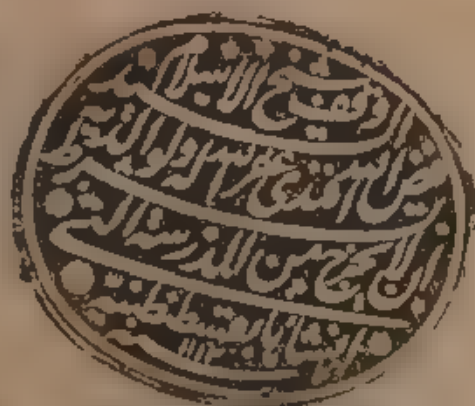 وقف شيخ الاسلام السيد
فيض الله افندى غفر الله له ولوالديه بشرط
ان لا يخرج من المدرسة التى
انشاها بقسطنطينية سنة ١١١٢